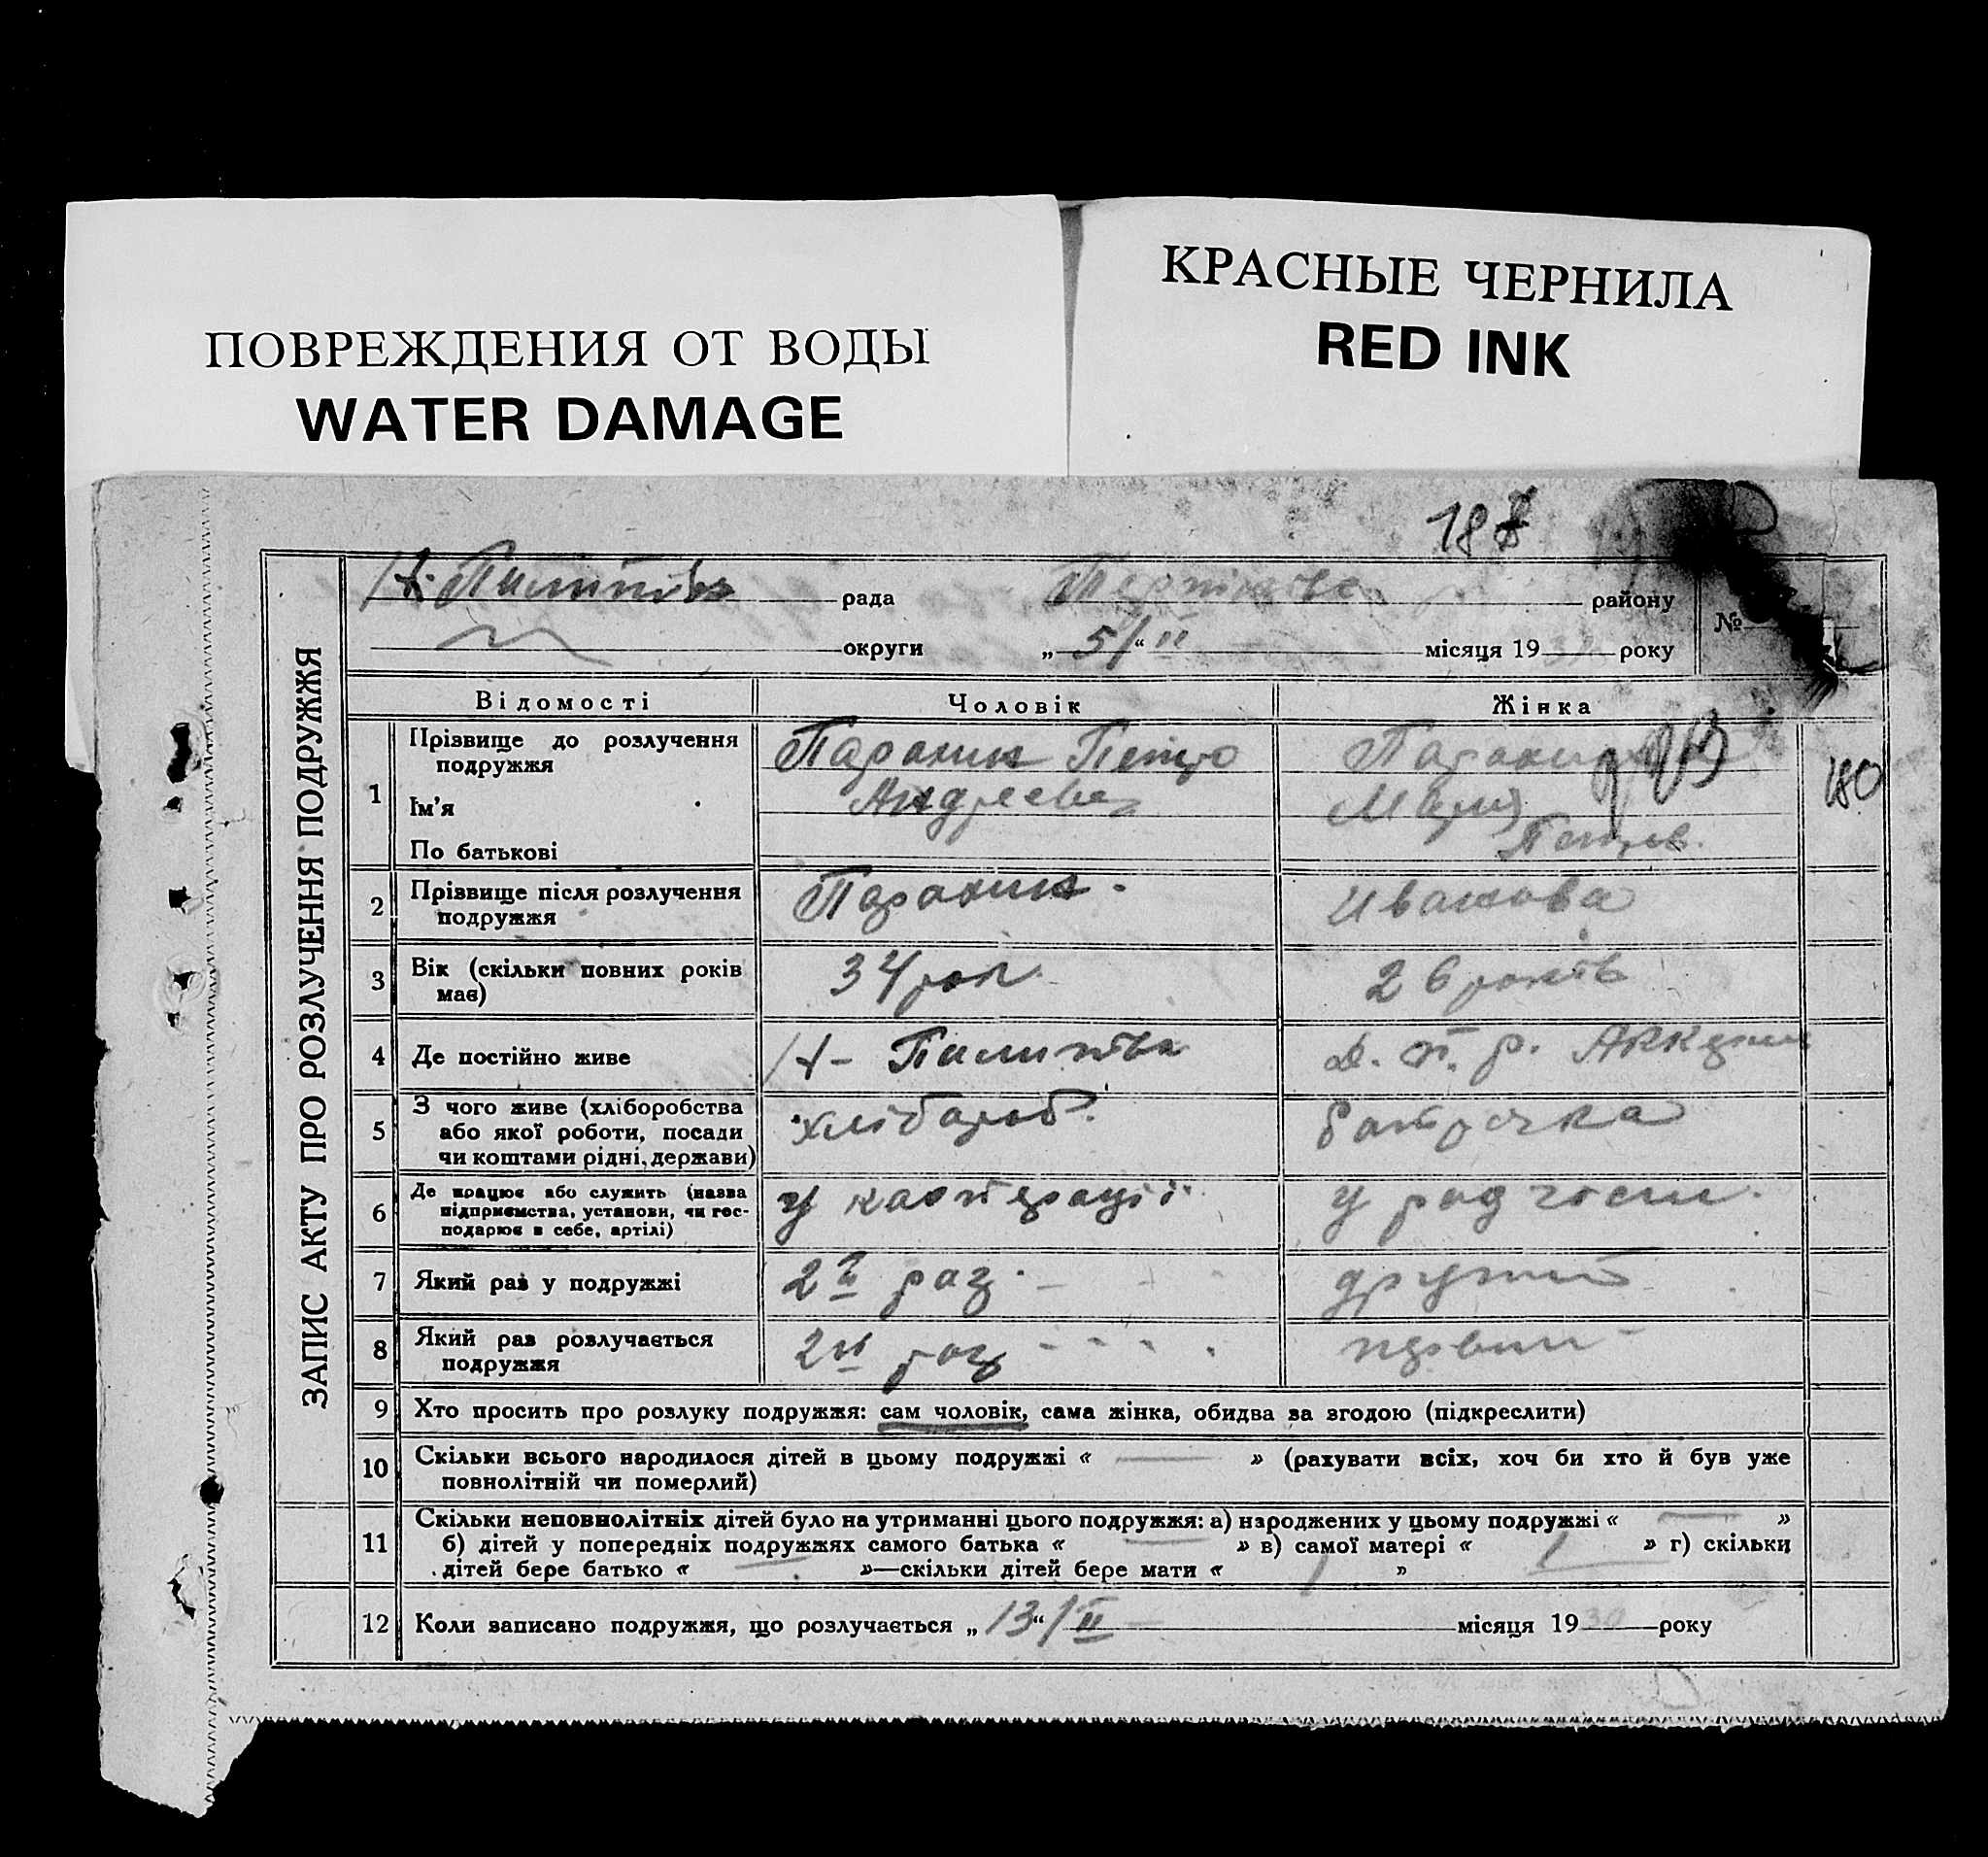 ПОВРЕЖДЕНИЯ ОТ ВОДЫ
WATER DAMAGE
КРАСНЫЕ ЧЕРНИЛА
RED INK
187
рада району №
округи „ 5/“ II місяця 19 року
ЗАПИС АКТУ ПРО РОЗЛУЧЕННЯ ПОДРУЖЖЯ
Відомості Чоловік Жінка
1 Прізвище до розлучення
подружжя
Ім'я
По батькові
Петро
Андреевич
Мария
Петров.
180
2 Прізвище після розлучення
подружжя
Иванова
3 Вік (скільки повних років
має)
34 рок. 26 років
4 Де постійно живе
5 З чого живе (хліборобства
або якої роботи, посади
чи коштами рідні, держави)
хлібороб. батрачка
6 Де працює або служить (назва
підприємства, установи, чи гос-
подарює в себе, артілі)
у радгоспи.
7 Який раз у подружжі 2й раз. другий
8 Який раз розлучається
подружжя
2й раз первий
9 Хто просить про розлуку подружжя: сам чоловік, сама жінка, обидва за згодою (підкреслити)
10 Скільки всього народилося дітей в цьому подружжі « — » (рахувати всіх, хоч би хто й був уже
повнолітній чи померлий)
11 Скільки неповнолітніх дітей було на утриманні цього подружжя: а) народжених у цьому подружжі « — »
б) дітей у попередніх подружжях самого батька « — » в) самої матері « 1 » г) скільки
дітей бере батько « — »—скільки дітей бере мати « 1 »
12 Коли записано подружжя, що розлучається „ 13“/II місяця 1930 року